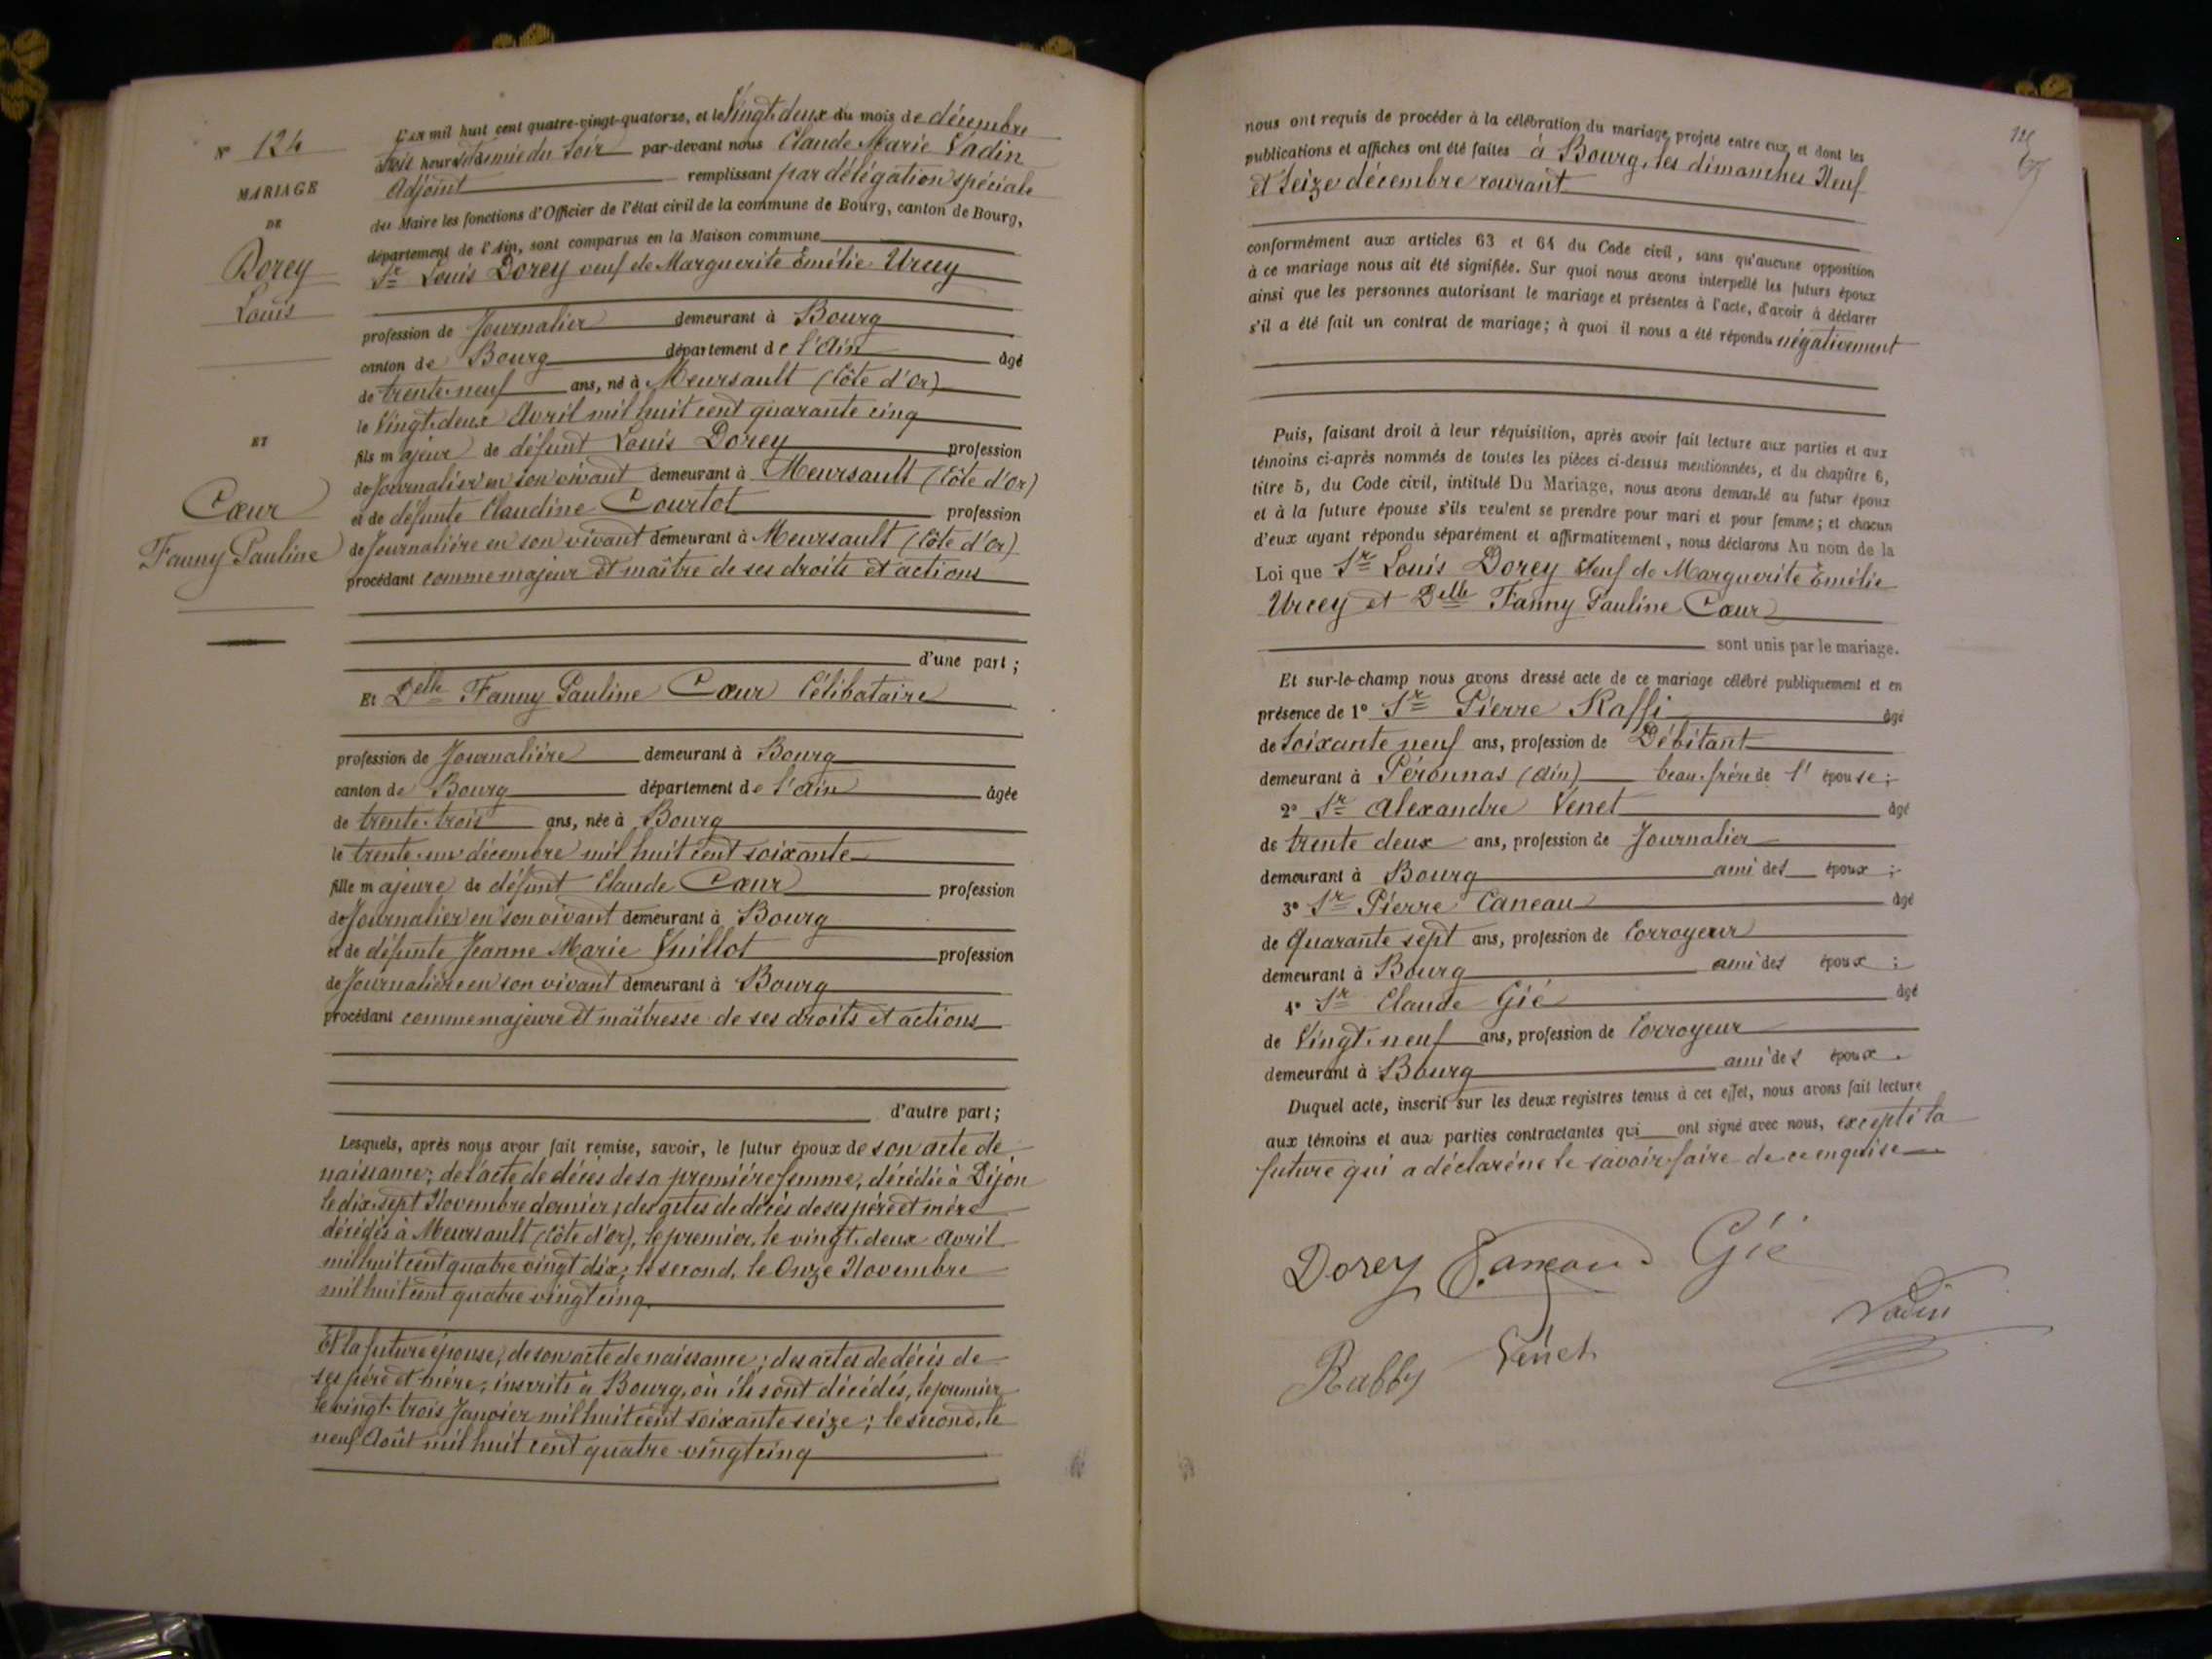 N° 124
MARIAGE
DE
Dorey
Louis
ET
Cœur
Fanny Pauline
L'an mil huit cent quatre-vingt-quatorze, et le Vingt deux du mois de décembre
à Six heures & demie du soir par-devant nous Claude Marie Vadin
Adjoint remplissant par délégation spéciale
du Maire les fonctions d'Officier de l'état civil de la commune de Bourg, canton de Bourg,
département de l'Ain, sont comparus en la Maison commune
Sr Louis Dorey veuf de Marguerite Emélie Urcey
profession de Journalier demeurant à Bourg
canton de Bourg département de l'Ain âgé
de trente-neuf ans, né à Meursault (Côte d'Or)
le Vingt-deux Avril mil huit cent quarante cinq
fils majeur de défunt Louis Dorey profession
de Journalier en son vivant demeurant à Meursault (Côte d'Or)
et de défunte Claudine Courtot profession
de Journalière en son vivant demeurant à Meursault (Côte d'Or)
procédant comme majeur et maître de ses droits et actions
d'une part ;
Et Delle Fanny Pauline Cœur Célibataire
profession de Journalière demeurant à Bourg
canton de Bourg département de l'ain âgée
de trente-trois ans, née à Bourg
le trente-un décembre mil huit cent soixante
fille majeure de défunt Claude Cœur profession
de Journalier en son vivant demeurant à Bourg
et de défunte Jeanne Marie Vuillot profession
de Journalière en son vivant demeurant à Bourg
procédant comme majeure et maîtresse de ses droits et actions
d'autre part ;
Lesquels, après nous avoir fait remise, savoir, le futur époux de son acte de
naissance ; de l'acte de décès de sa première femme, décédée à Dijon
le dix-sept Novembre dernier ; des actes de décès de ses père et mère
décédés à Meursault (Côte d'Or), le premier, le vingt-deux Avril
mil huit cent quatre vingt dix ; le second, le Onze Novembre
mil huit cent quatre vingt cinq.
Et la future épouse, de son acte de naissance ; des actes de décès de
ses père et mère, inscrits à Bourg, où ils sont décédés, le premier
le vingt-trois Janvier mil huit cent soixante seize ; le second, le
neuf Août mil huit cent quatre-vingt cinq
nous ont requis de procéder à la célébration du mariage projeté entre eux, et dont les
publications et affiches ont été faites à Bourg, les dimanches Neuf
et Seize décembre courant
conformément aux articles 63 et 64 du Code civil, sans qu'aucune opposition
à ce mariage nous ait été signifiée. Sur quoi nous avons interpellé les futurs époux
ainsi que les personnes autorisant le mariage et présentes à l'acte, d'avoir à déclarer
s'il a été fait un contrat de mariage ; à quoi il nous a été répondu négativement
Puis, faisant droit à leur réquisition, après avoir fait lecture aux parties et aux
témoins ci-après nommés de toutes les pièces ci-dessus mentionnées, et du chapitre 6,
titre 5, du Code civil, intitulé Du Mariage, nous avons demandé au futur époux
et à la future épouse s'ils veulent se prendre pour mari et pour femme ; et chacun
d'eux ayant répondu séparément et affirmativement, nous déclarons Au nom de la
Loi que Sr Louis Dorey Veuf de Marguerite Emélie
Urcey et Delle Fanny Pauline Cœur
sont unis par le mariage.
Et sur-le-champ nous avons dressé acte de ce mariage célébré publiquement et en
présence de 1° Sr Pierre Raffi âgé
de Soixante neuf ans, profession de Débitant
demeurant à Péronnas (Ain) beau-frère de l'épouse ;
2° Sr Alexandre Venet âgé
de trente deux ans, profession de Journalier
demeurant à Bourg ami des époux ;
3° Sr Pierre Caneau âgé
de Quarante sept ans, profession de Corroyeur
demeurant à Bourg ami des époux ;
4° Sr Claude Gié âgé
de Vingt-neuf ans, profession de Corroyeur
demeurant à Bourg ami des époux.
Duquel acte, inscrit sur les deux registres tenus à cet effet, nous avons fait lecture
aux témoins et aux parties contractantes qui ont signé avec nous, excepté la
future qui a déclaré ne le savoir faire de ce enquise
Dorey Gié
Vadin
Venet